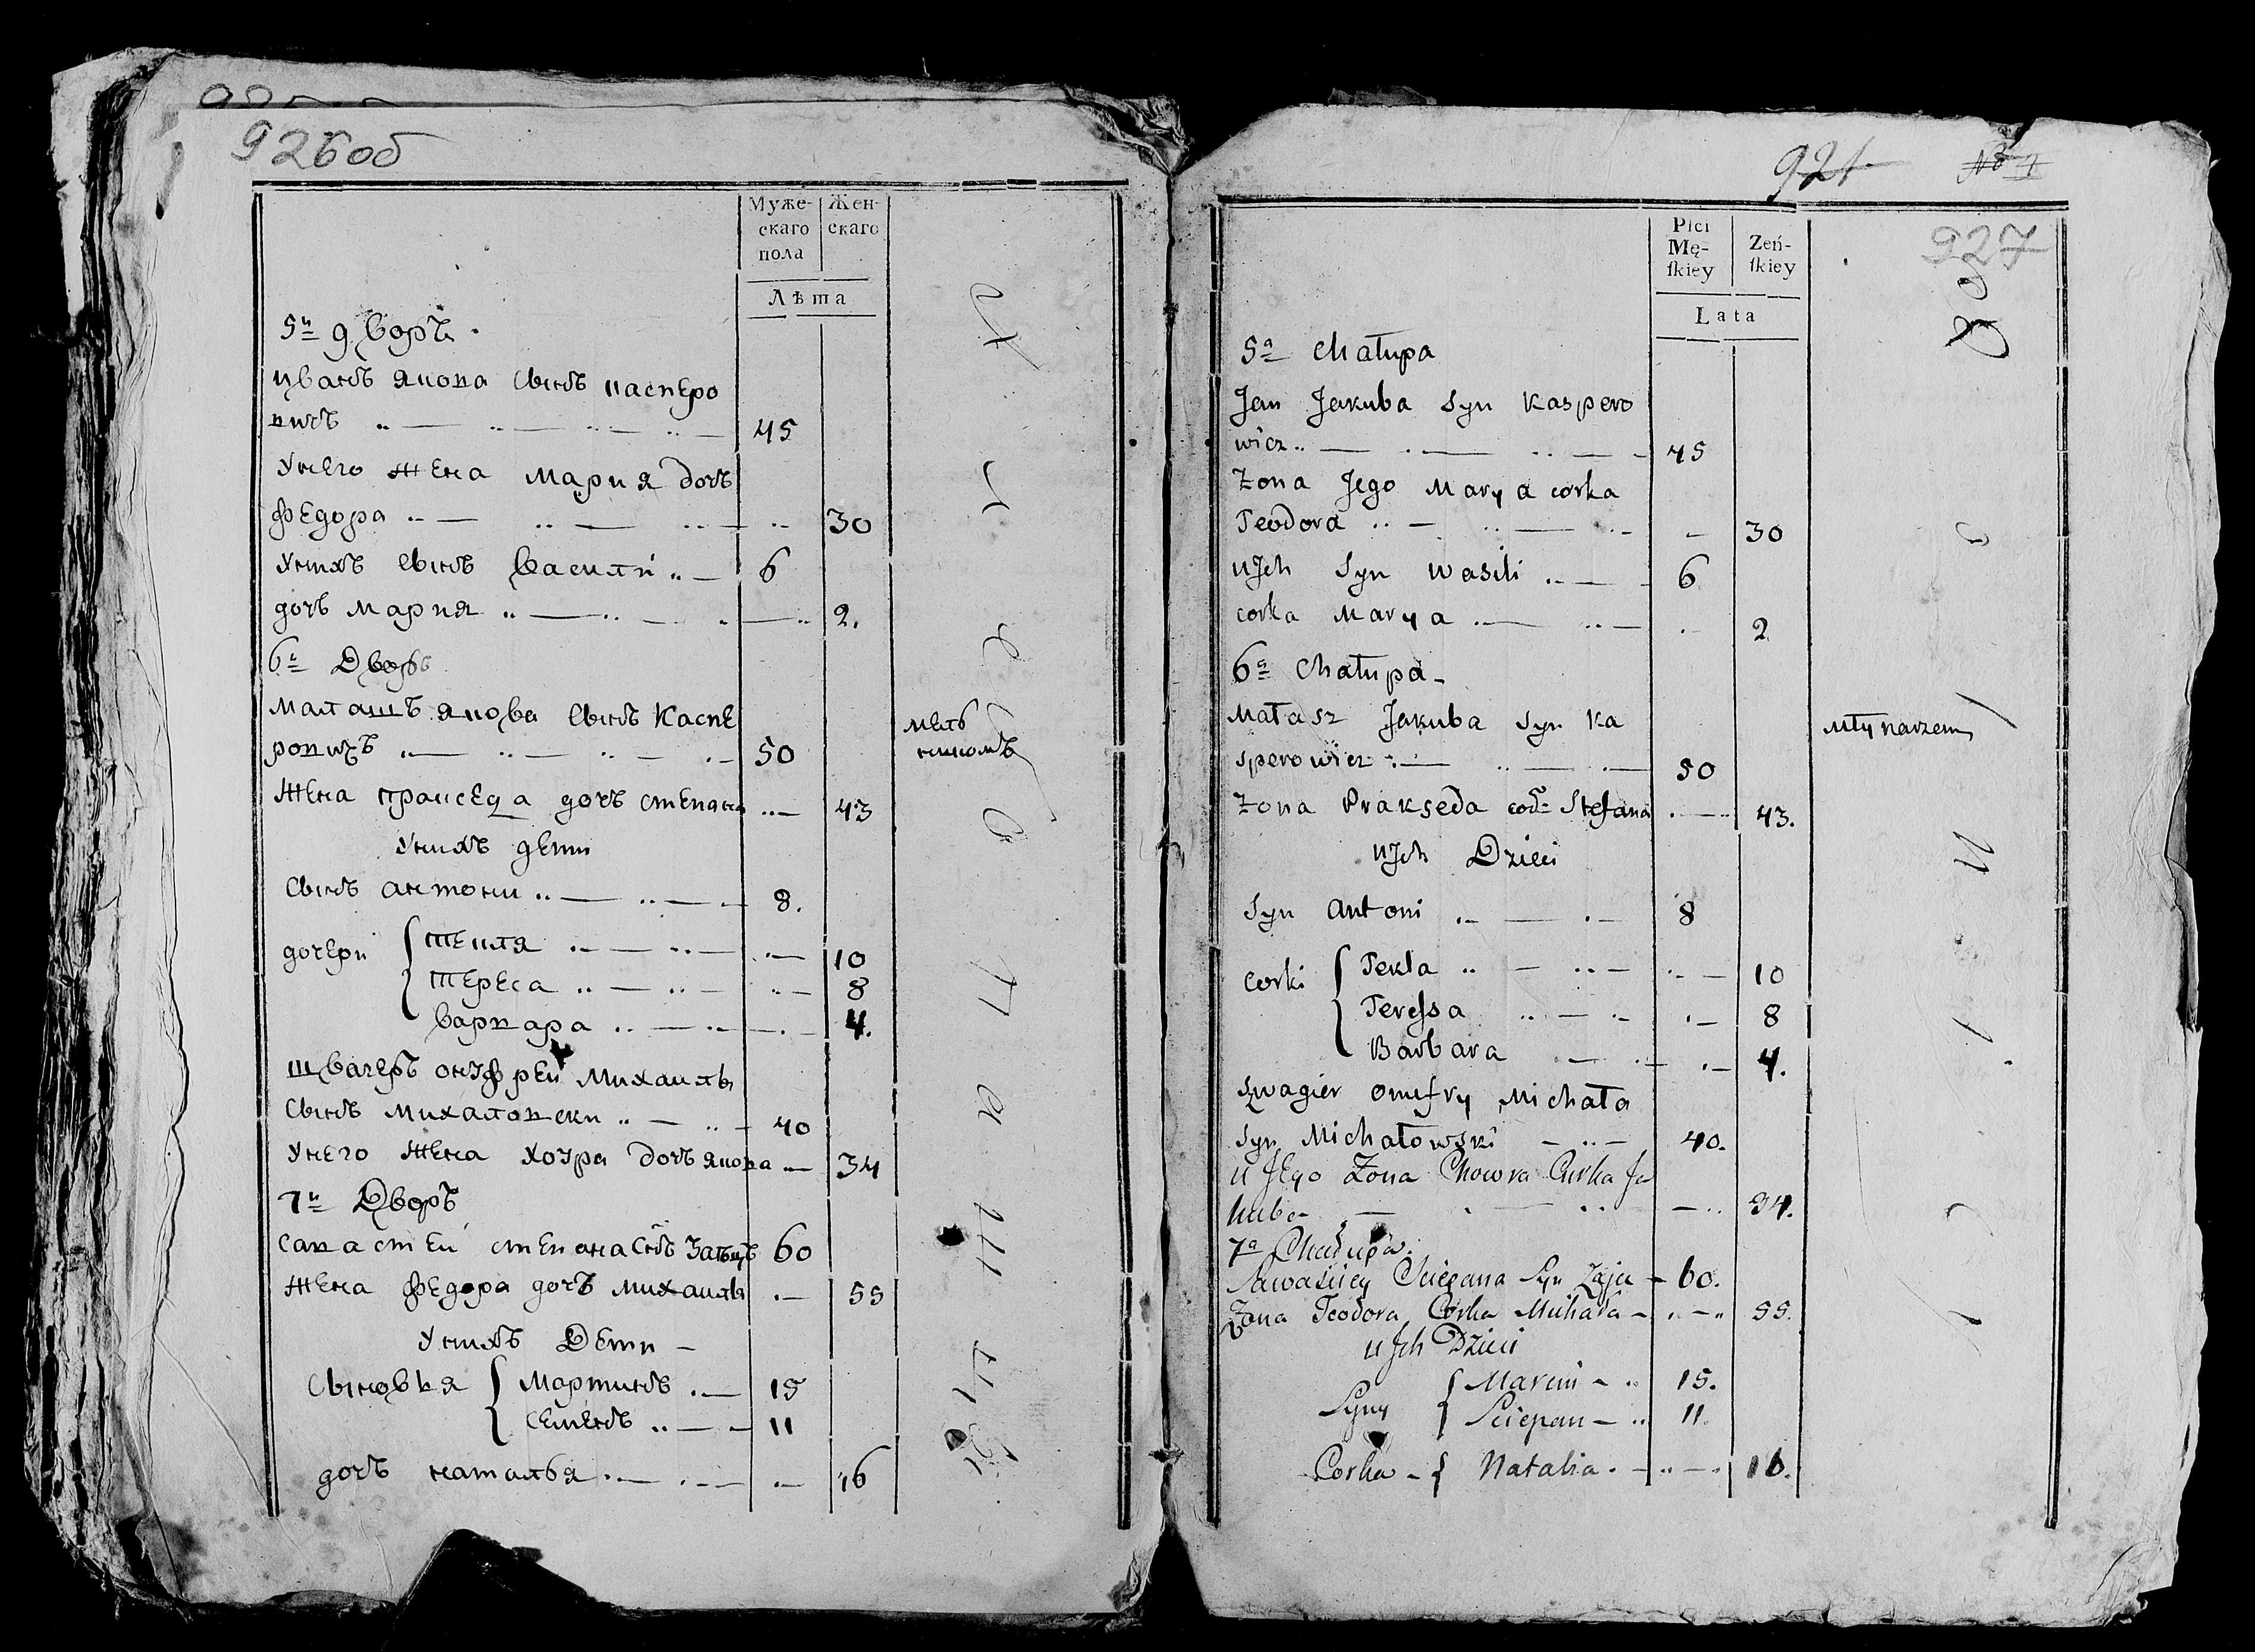 926об
Муже-
скаго
пола
Жен-
скаго
Лѣта
5й дворъ
иванъ якова сынъ каспero
вичъ 45
Унего жена мария дочъ
федора 30
Унихъ сынъ василй 6
дочъ мария 2.
6й Дворъ
малашъ якова сынъ Каспе
ровичъ 50
мель
никомъ
жена пракседа дочъ степана 43
Унихъ дети
сынъ антони 8.
дочери текля 10
тереса 8
варвара 4.
швагеръ онуфрей михаила
сынъ михаловски 40
Унего жена ховра дочъ якова 34
7й Дворъ
савастей степана снъ Заяцъ 60
жена федора дочъ михаила 55
Унихъ Дети
сыновья мартинъ 15
семенъ 11
дочъ наталья 16
921 № 1
927
Płci
Mę-
ſkiey
Zeń-
ſkiey
Lata
5a Chałupa
Jan Jakuba Syn Kaspero
wicz 45
Zona Jego Marya corka
Teodora 30
uJch Syn Wasili 6
corka Marya 2
6a Chałupa
Małasz Jakuba Syn Ka
sperowicz 50
Młynarzem
Zona Prakseda Stefana 43.
uJch Dzieci
Syn Antoni 8
Corki Tekla 10
Teressa 8
Barbara 4.
Szwagier Onufry Michała
Syn Michałowski 40.
u Jego Zona Chowra Curka Ja
kuba 34.
7a Chałupa.
Sawasciey Sciepana Syn Zając 60.
Zona Teodora Corka Michała 55.
u Jch Dzieci
Syny Marcin 15.
Sciepan 11.
Corka Natalia 16.